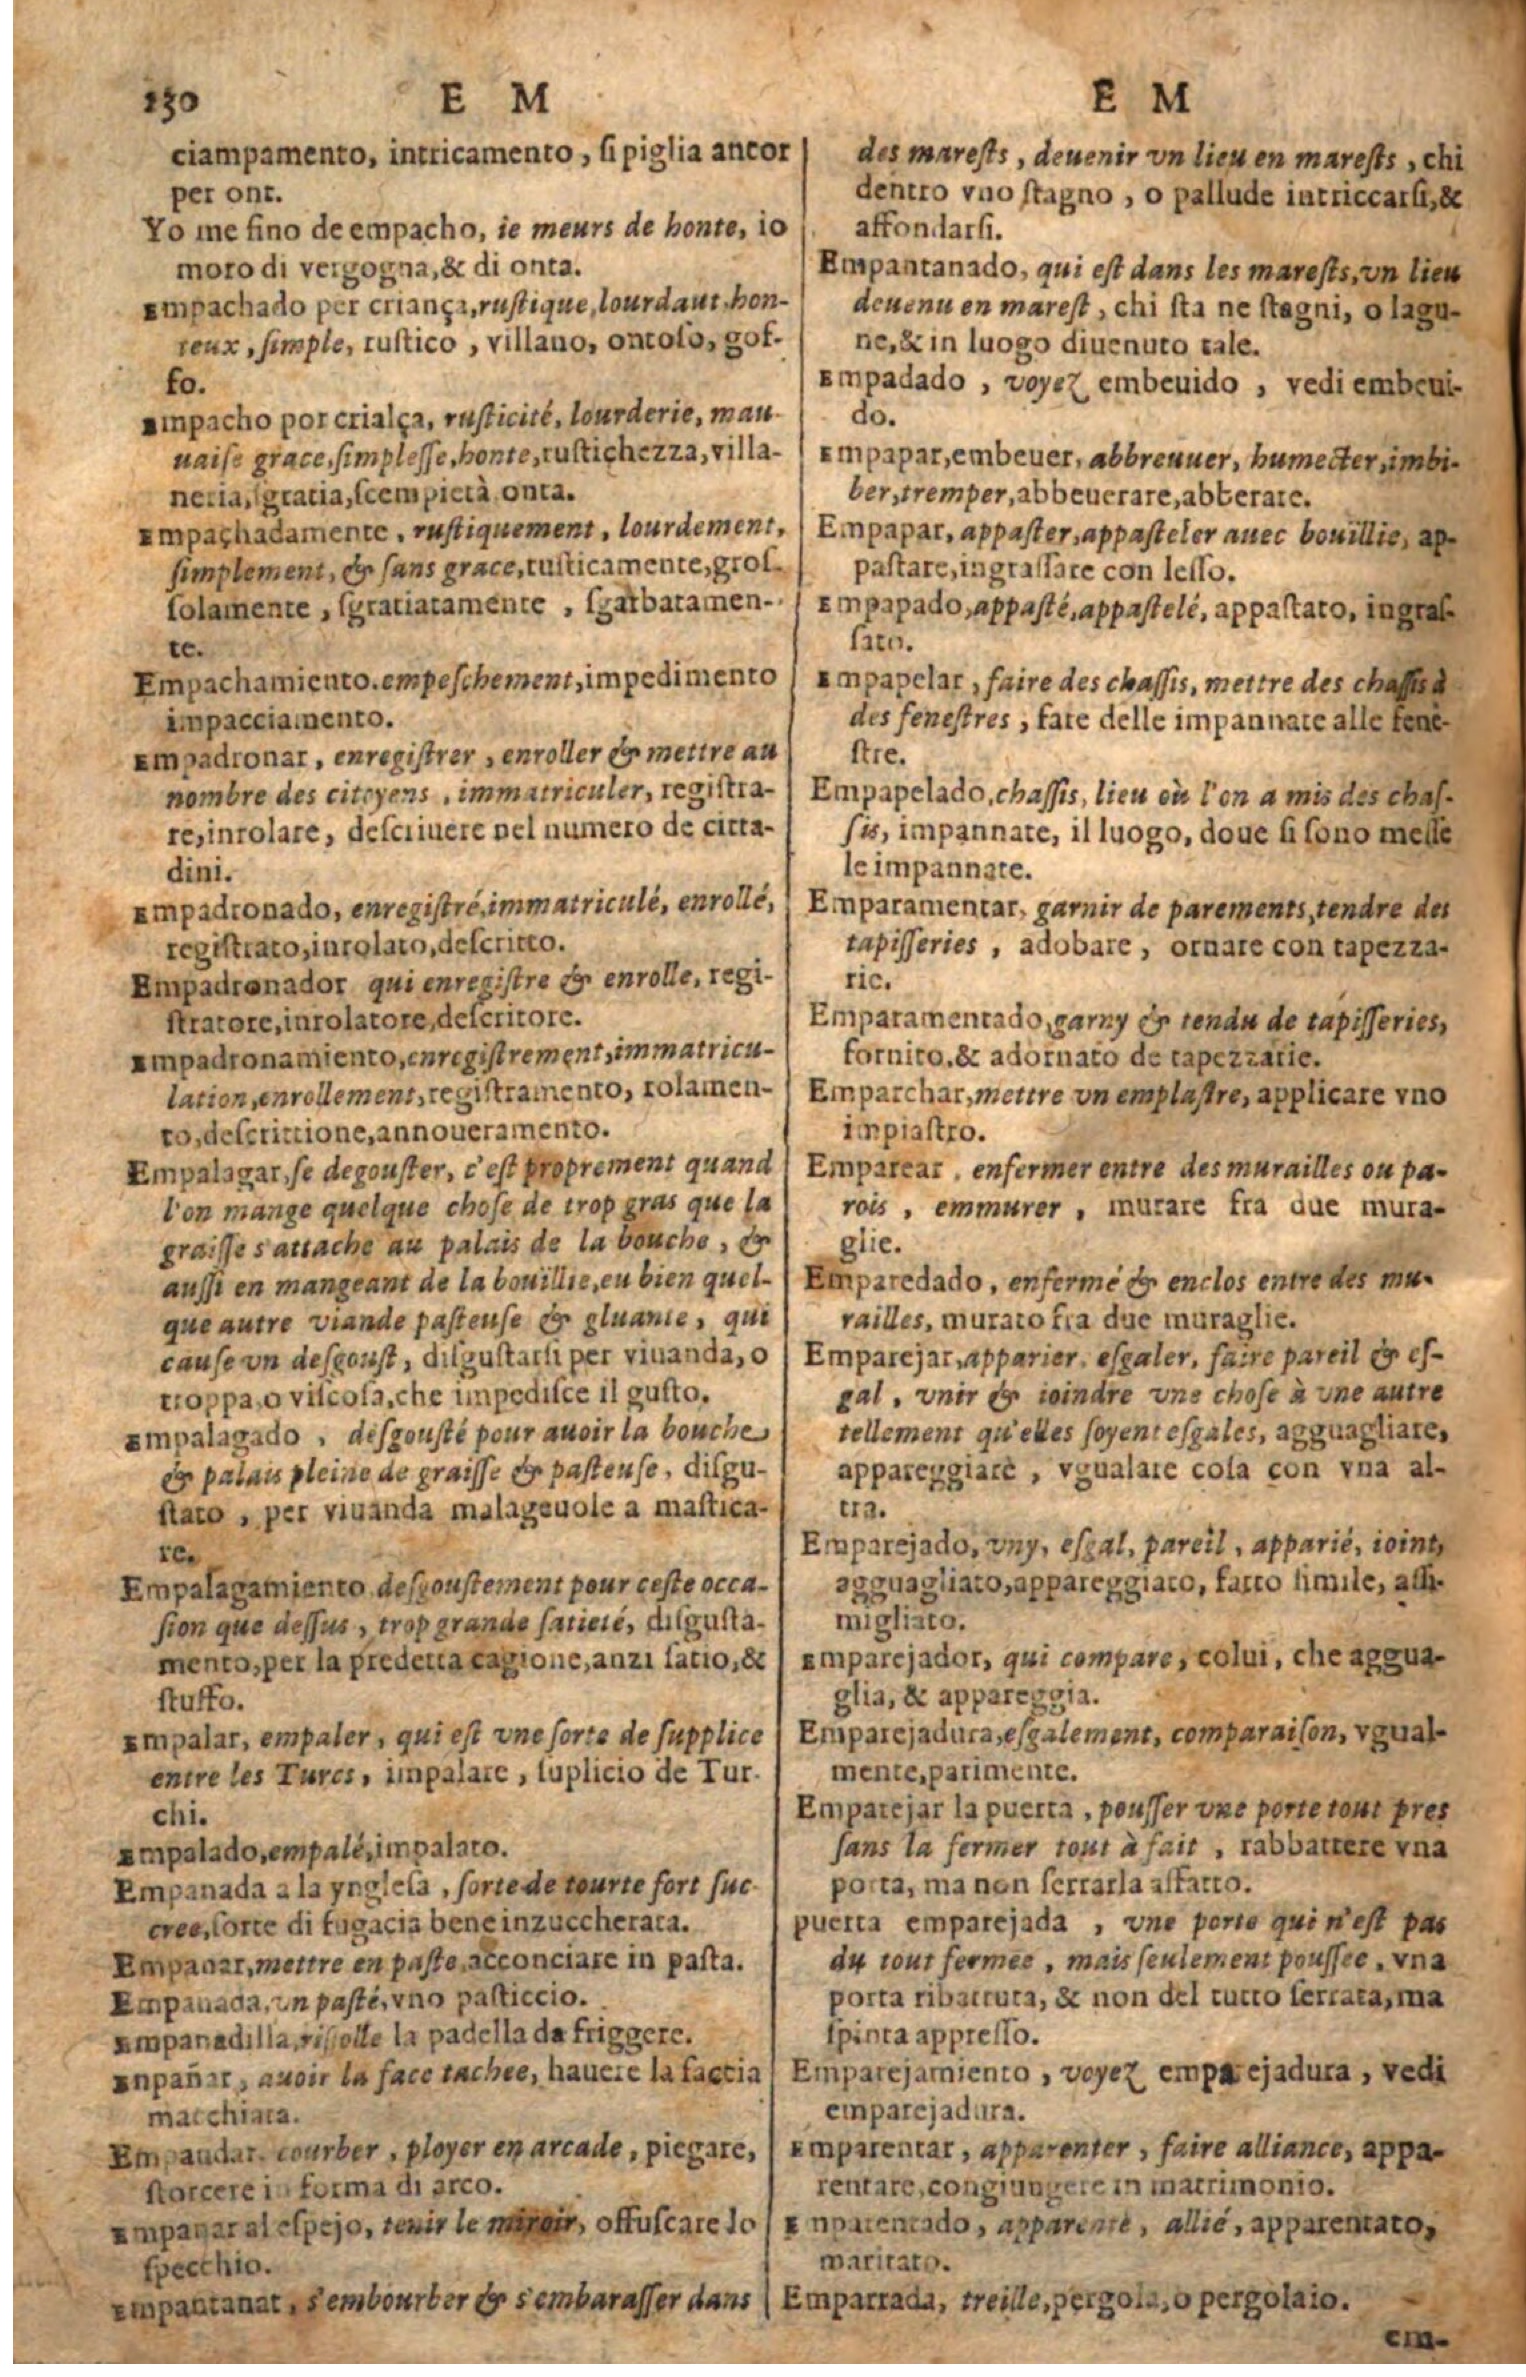 130
E M
E M
ciampamento, intricamento, si piglia ancor
per ont.
Yo me fino de empacho, ie meurs de honte, io
moro di vergogna,& di onta.
Empachado per criança,rustique,lourdaut,hon-
teux, simple, rustico, villano, ontoso, gof-
fo.
Empacho por crialça, rusticité, lourderie, mau-
uaise grace,simplesse,honte,rustichezza,villa-
neria,sgratia,scempietà onta.
Empaçhadamente, rustiquement, lourdement,
simplement, & sans grace,rusticamente,gros-
solamente, sgratiatamente, sgarbatamen-
te.
Empachamiento.empeschement,impedimento
impacciamento.
Empadronar, enregistrer, enroller & mettre au
nombre des citoyens, immatriculer, registra-
re,inrolare, descriuere nel numero de citta-
dini.
Empadronado, enregistré,immatriculé, enrollé,
registrato,inrolato,descritto.
Empadronador qui enregistre & enrolle, regi-
stratore,inrolatore,descritore.
Empadronamiento,enregistrement,immatricu-
lation,enrollement,registramento, rolamen-
to,descrittione,annoueramento.
Empalagar,se degouster, c'est proprement quand
l'on mange quelque chose de trop gras que la
graisse s'attache au palais de la bouche, &
aussi en mangeant de la bouïllie,eu bien quel-
que autre viande pasteuse & gluante, qui
cause vn desgoust, disgustarsi per viuanda, o
troppa,o viscosa,che impedisce il gusto.
Empalagado, desgousté pour auoir la bouche
& palais pleine de graisse & pasteuse, disgu-
stato, per viuanda malageuole a mastica-
re.
Empalagamiento desgoustement pour ceste occa-
sion que dessus, trop grande satieté, disgusta-
mento,per la predetta cagione,anzi satio,&
stuffo.
Empalar, empaler, qui est vne sorte de supplice
entre les Turcs, impalare, suplicio de Tur-
chi.
Empalado,empalé,impalato.
Empanada a la ynglesa, sorte de tourte fort suc-
cree,sorte di fugacia bene inzuccherata.
Empanar,mettre en paste,acconciare in pasta.
Empanada,vn pasté,vno pasticcio.
Empanadilla,rissolle la padella da friggere.
Enpañar, auoir la face tachee, hauere la faccia
macchiata.
Empandar. courber, ployer en arcade, piegare,
storcere in forma di arco.
Empañar al espejo, tenir le miroir, offuscare lo
specchio.
Empantanar, s'embourber & s'embarasser dans
des marests, deuenir vn lieu en marests, chi
dentro vno stagno, o pallude intriccarsi,&
affondarsi.
Empantanado, qui est dans les marests,vn lieu
deuenu en marest, chi sta ne stagni, o lagu-
ne,& in luogo diuenuto tale.
Empadado, voyez embeuido, vedi embeui-
do.
Empapar,embeuer, abbreuuer, humecter,imbi-
ber,tremper,abbeuerare,abberare.
Empapar, appaster,appasteler auec bouïllie, ap-
pastare,ingrassare con lesso.
Empapado,appasté,appastelé, appastato, ingras-
sato.
Empapelar, faire des chassis, mettre des chassis à
des fenestres, fare delle impannate alle fene-
stre.
Empapelado,chassis, lieu où l'on a mis des chas-
sis, impannate, il luogo, doue si sono messe
le impannate.
Emparamentar, garnir de parements,tendre des
tapisseries, adobare, ornare con tapezza-
rie.
Emparamentado,garny & tendu de tapisseries,
fornito,& adornato de tapezzarie.
Emparchar,mettre vn emplastre, applicare vno
impiastro.
Emparear, enfermer entre des murailles ou pa-
rois, emmurer, murare fra due mura-
glie.
Emparedado, enfermé & enclos entre des mu-
railles, murato fra due muraglie.
Emparejar,apparier, esgaler, faire pareil & es-
gal, vnir & ioindre vne chose à vne autre
tellement qu'elles soyent esgales, agguagliare,
appareggiare, vgualare cosa con vna al-
tra.
Emparejado, vny, esgal, pareil, apparié, ioint,
agguagliato,appareggiato, fatto simile, assi-
migliato.
Emparejador, qui compare, colui, che aggua-
glia, & appareggia.
Emparejadura,esgalement, comparaison, vgual-
mente,parimente.
Emparejar la puerta, pousser vne porte tout pres
sans la fermer tout à fait, rabbattere vna
porta, ma non serrarla affatto.
puerta emparejada, vne porte qui n'est pas
du tout fermee, mais seulement poussee, vna
porta ribattuta, & non del tutto serrata,ma
spinta appresso.
Emparejamiento, voyez emparejadura, vedi
emparejadura.
Emparentar, apparenter, faire alliance, appa-
rentare,congiungere in matrimonio.
Enparentado, apparenté, allié, apparentato,
maritato.
Emparrada, treille,pergola,o pergolaio.
em-